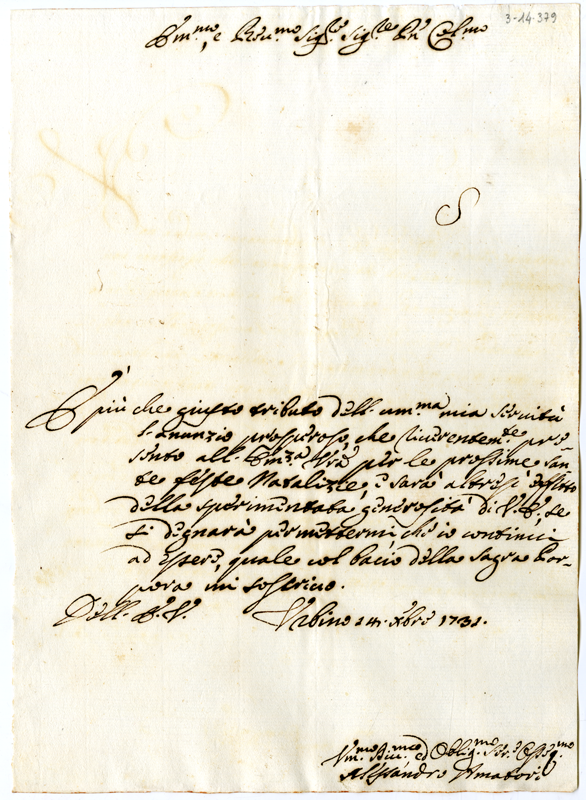 3-14-379
Em.mo, e Reu.mo Sig.re Sig.re Pñ Col.mo
È più che giusto tributo dell' um.ma mia seruitù
l'annunzio prosperoso, che riuerentem.te pre
sento all' Em.za Vrã per le prossime San
te feste Natalizie, e sarà altresì effetto
della sperimentata generosità di V. E., se
si degnarà permettermi, che io continui
ad essere, quale col bacio della Sagra Por-
pora mi soscriuo.
Dell' E. V. Urbino 24. Xbre 1731.
Um.mo Diu.mo ed Oblig.mo Ser.e Osseq.mo
Alessandro Amatori